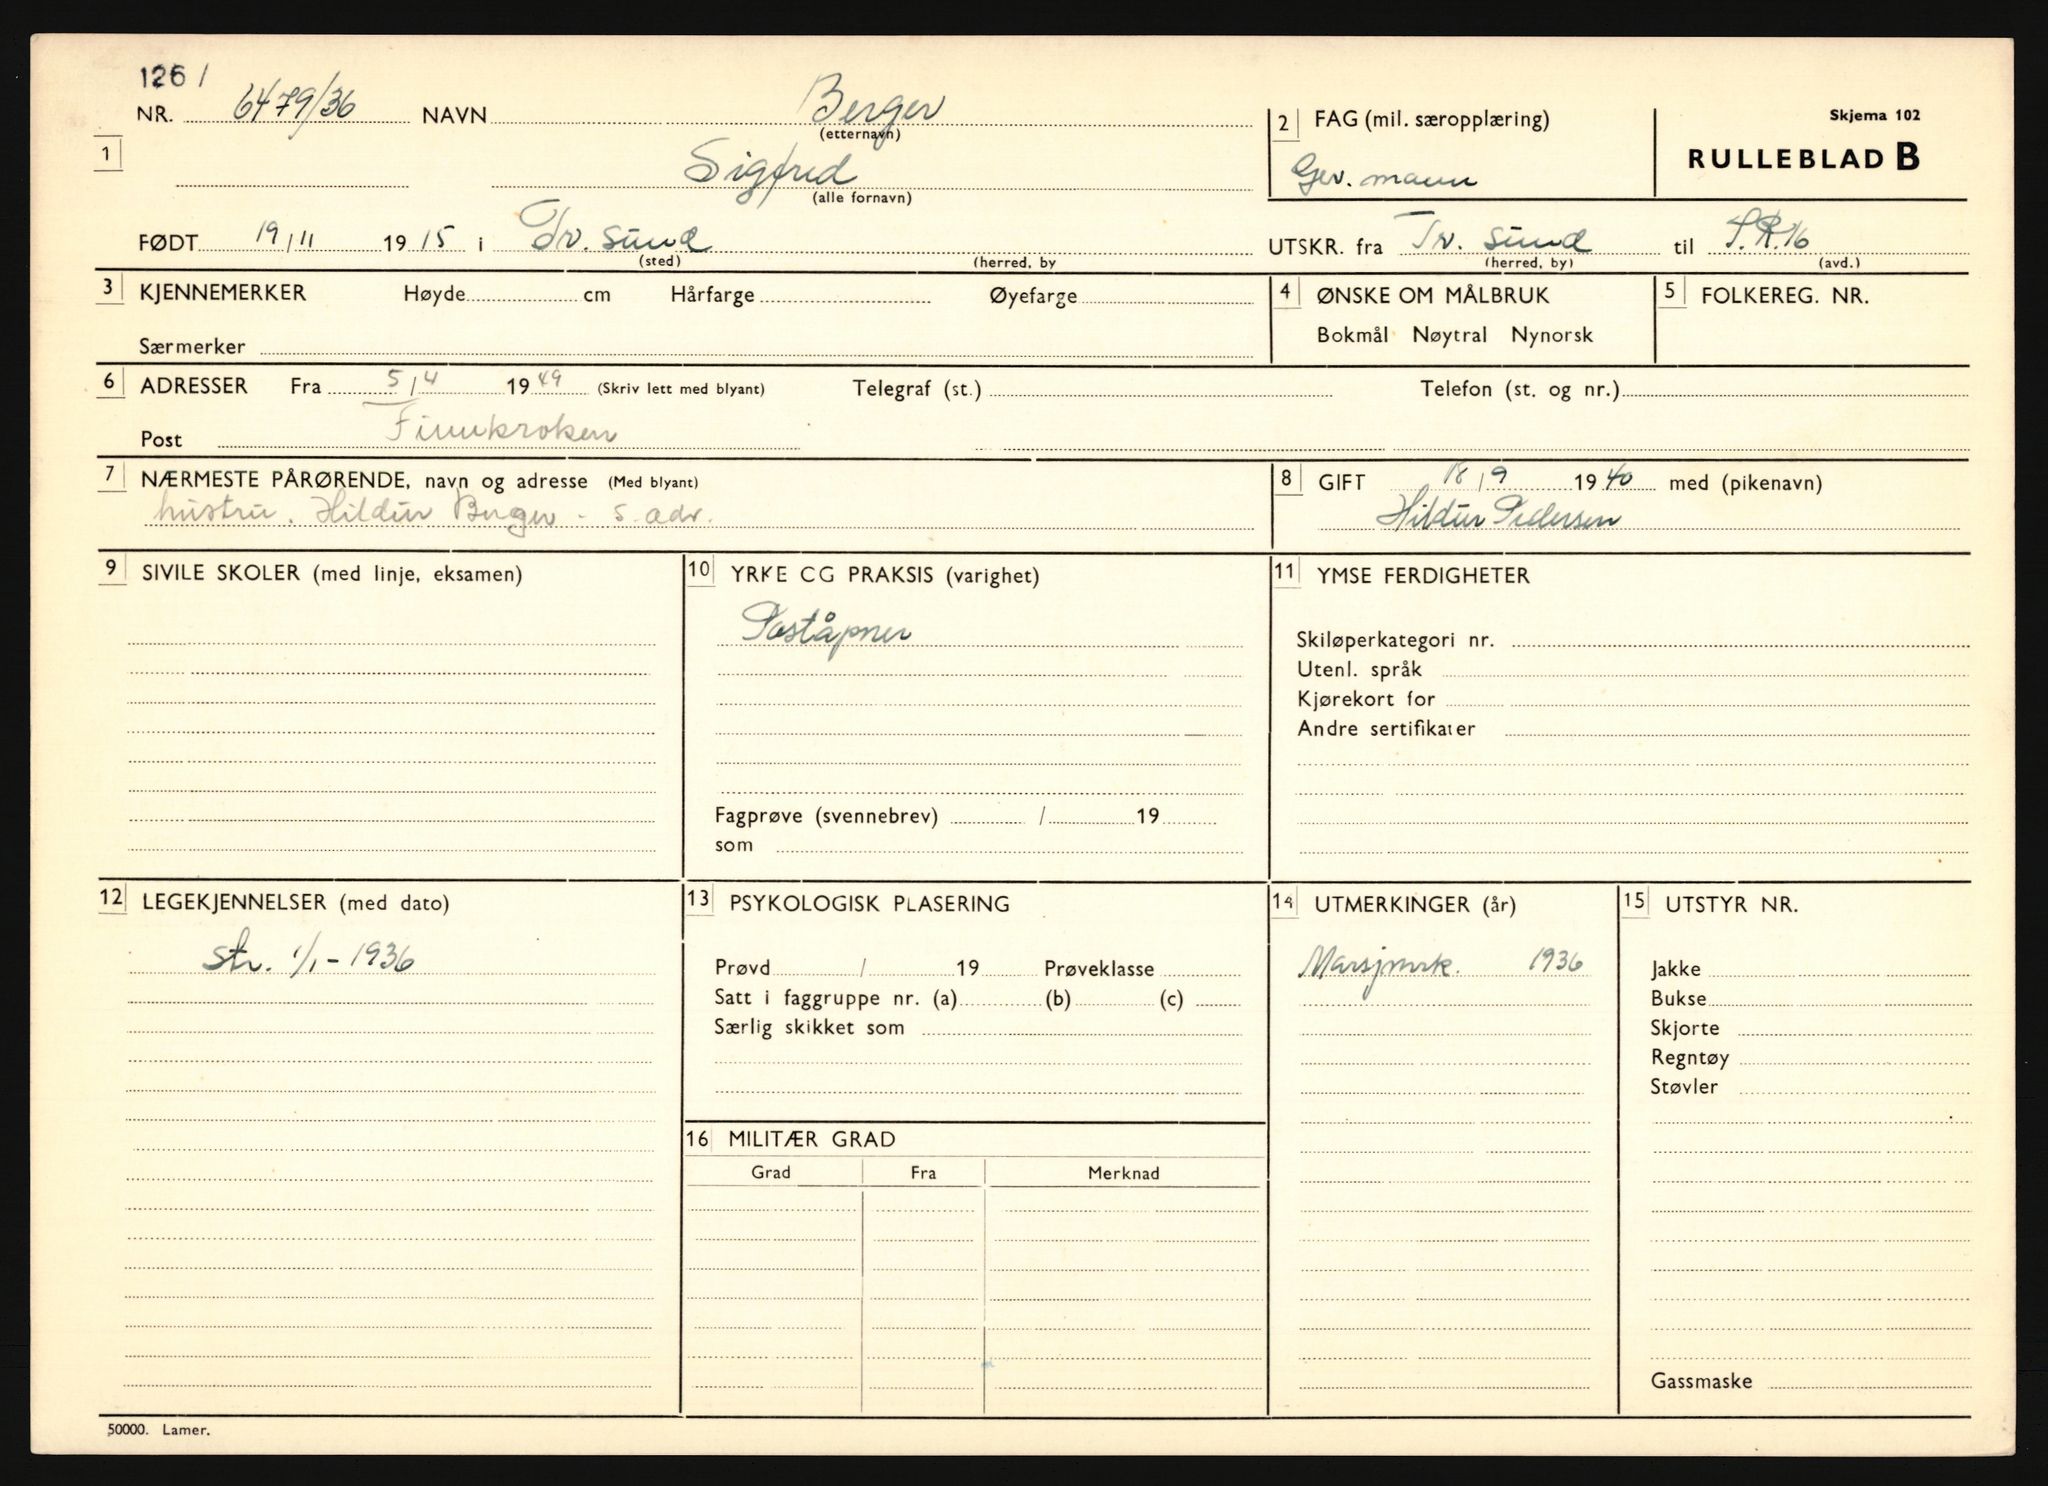 126 /
NR. 6479/36 NAVN Berger
(etternavn)
2 FAG (mil. særopplæring)
Skjema 102
RULLEBLAD B
1
Sigfred
(alle fornavn)
Gev. mann
FØDT 19/11 1915 i Tr. sund
(sted) (herred, by
UTSKR. fra Tr. sund til I.R.16
(herred, by) (avd.)
3 KJENNEMERKER Høyde cm Hårfarge Øyefarge
Særmerker
4 ØNSKE OM MÅLBRUK
Bokmål Nøytral Nynorsk
5 FOLKEREG. NR.
6 ADRESSER Fra 5/4 1949 (Skriv lett med blyant) Telegraf (st.) Telefon (st. og nr.)
Post Finnkroken
7 NÆRMESTE PÅRØRENDE, navn og adresse (Med blyant)
hustru. Hildur Berger - s. adr.
8 GIFT 18/9 1940 med (pikenavn)
Hildur Pedersen
9 SIVILE SKOLER (med linje, eksamen)
10 YRKE CG PRAKSIS (varighet)
Poståpner
Fagprøve (svennebrev) / 19
som
11 YMSE FERDIGHETER
Skiløperkategori nr.
Utenl. språk
Kjørekort for
Andre sertifikater
12 LEGEKJENNELSER (med dato)
Str. 1/1 - 1936
13 PSYKOLOGISK PLASERING
Prøvd / 19 Prøveklasse
Satt i faggruppe nr. (a) (b) (c)
Særlig skikket som
14 UTMERKINGER (år)
Marsjmrk. 1936
15 UTSTYR NR.
Jakke
Bukse
Skjorte
Regntøy
Støvler
Gassmaske
16 MILITÆR GRAD
Grad Fra Merknad
50000. Lamer.